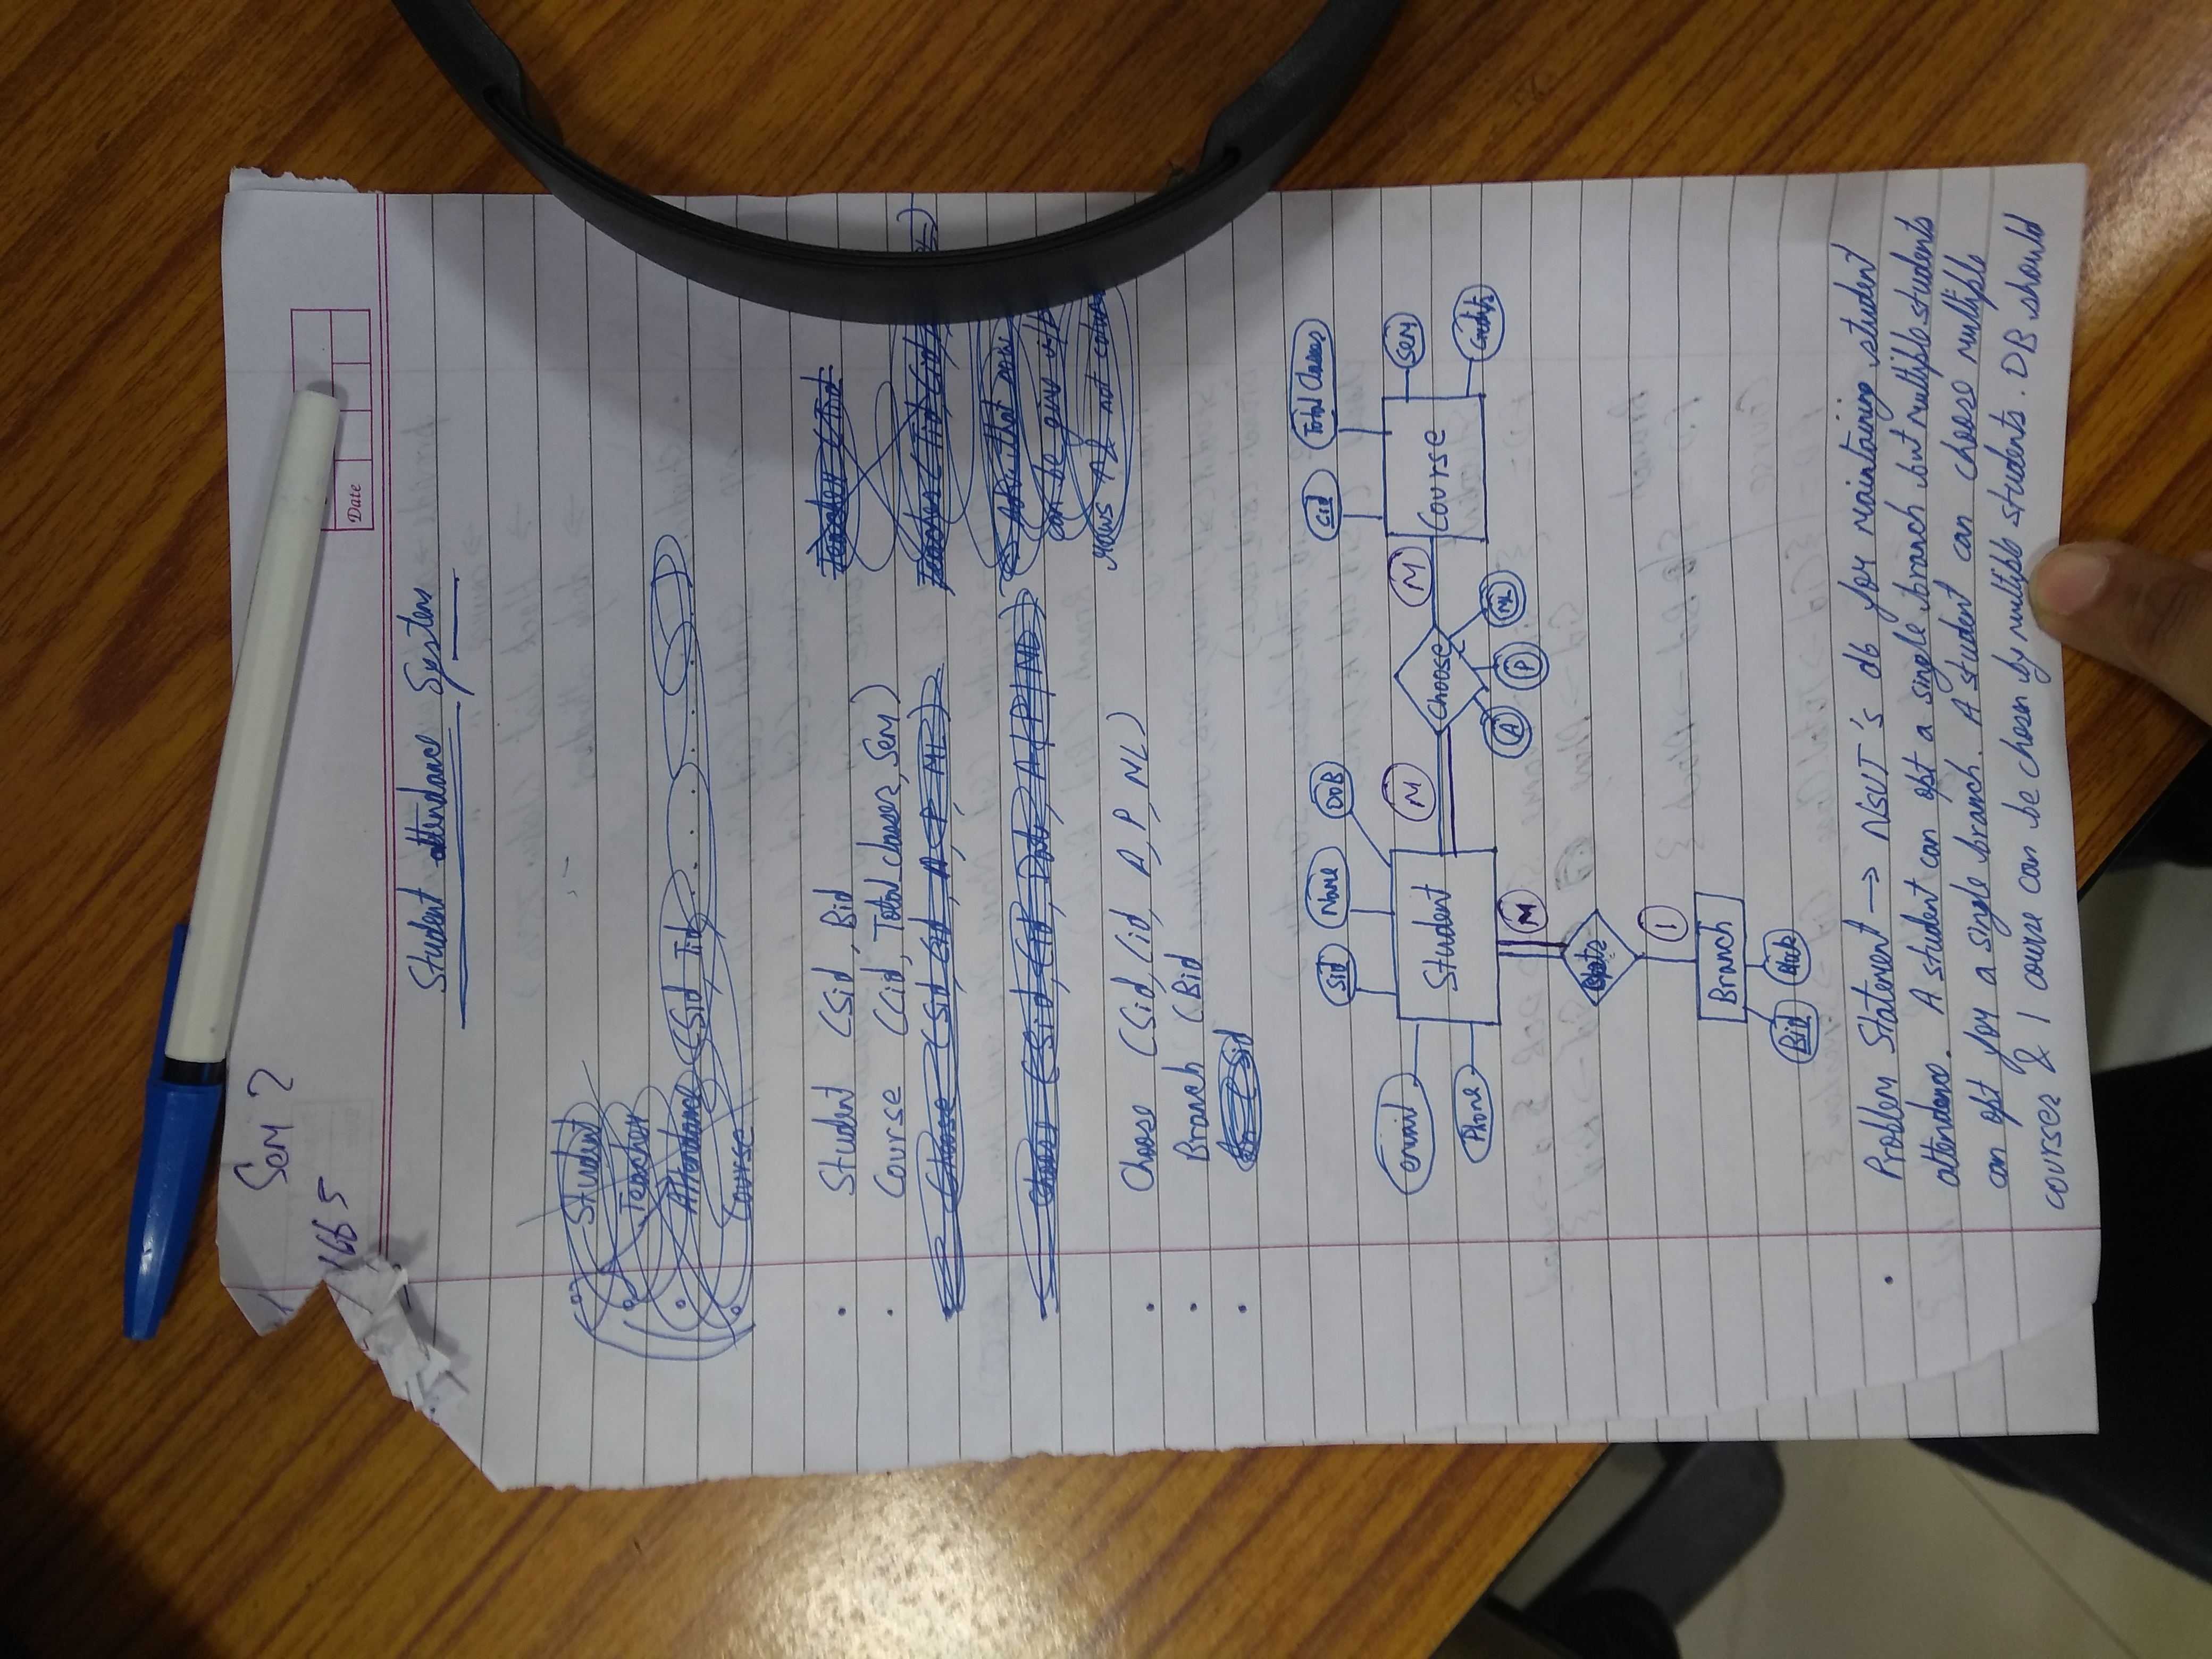 Sem 2
1665
Date
Student attendance System
Student
Teacher
Attendance (Sid, Tid, . . . . . . . . )
Course
Student (Sid, Bid
Teacher (Tid
Course (Cid, Total classes, Sem)
Choose (Sid, Cid, A, P, ML)
Teacher (Tid, Cid,
Choose (Sid, Cid, Date, A/P/ML)
that rows
can be give
rows & not colum
Choose (Sid, Cid, A, P, ML)
Branch (Bid
(Sid
Sid Name DOB Cid Total Classes
email Student M Choose M Course Sem
Phone A P ML Credits
M
Opts
1
Branch
Bid Block
Problem Statement → NSUT's db for maintaining student
attendence. A student can opt a single branch but multiple students
can opt for a single branch. A student can choose multiple
courses & 1 course can be chosen by multiple students. DB should